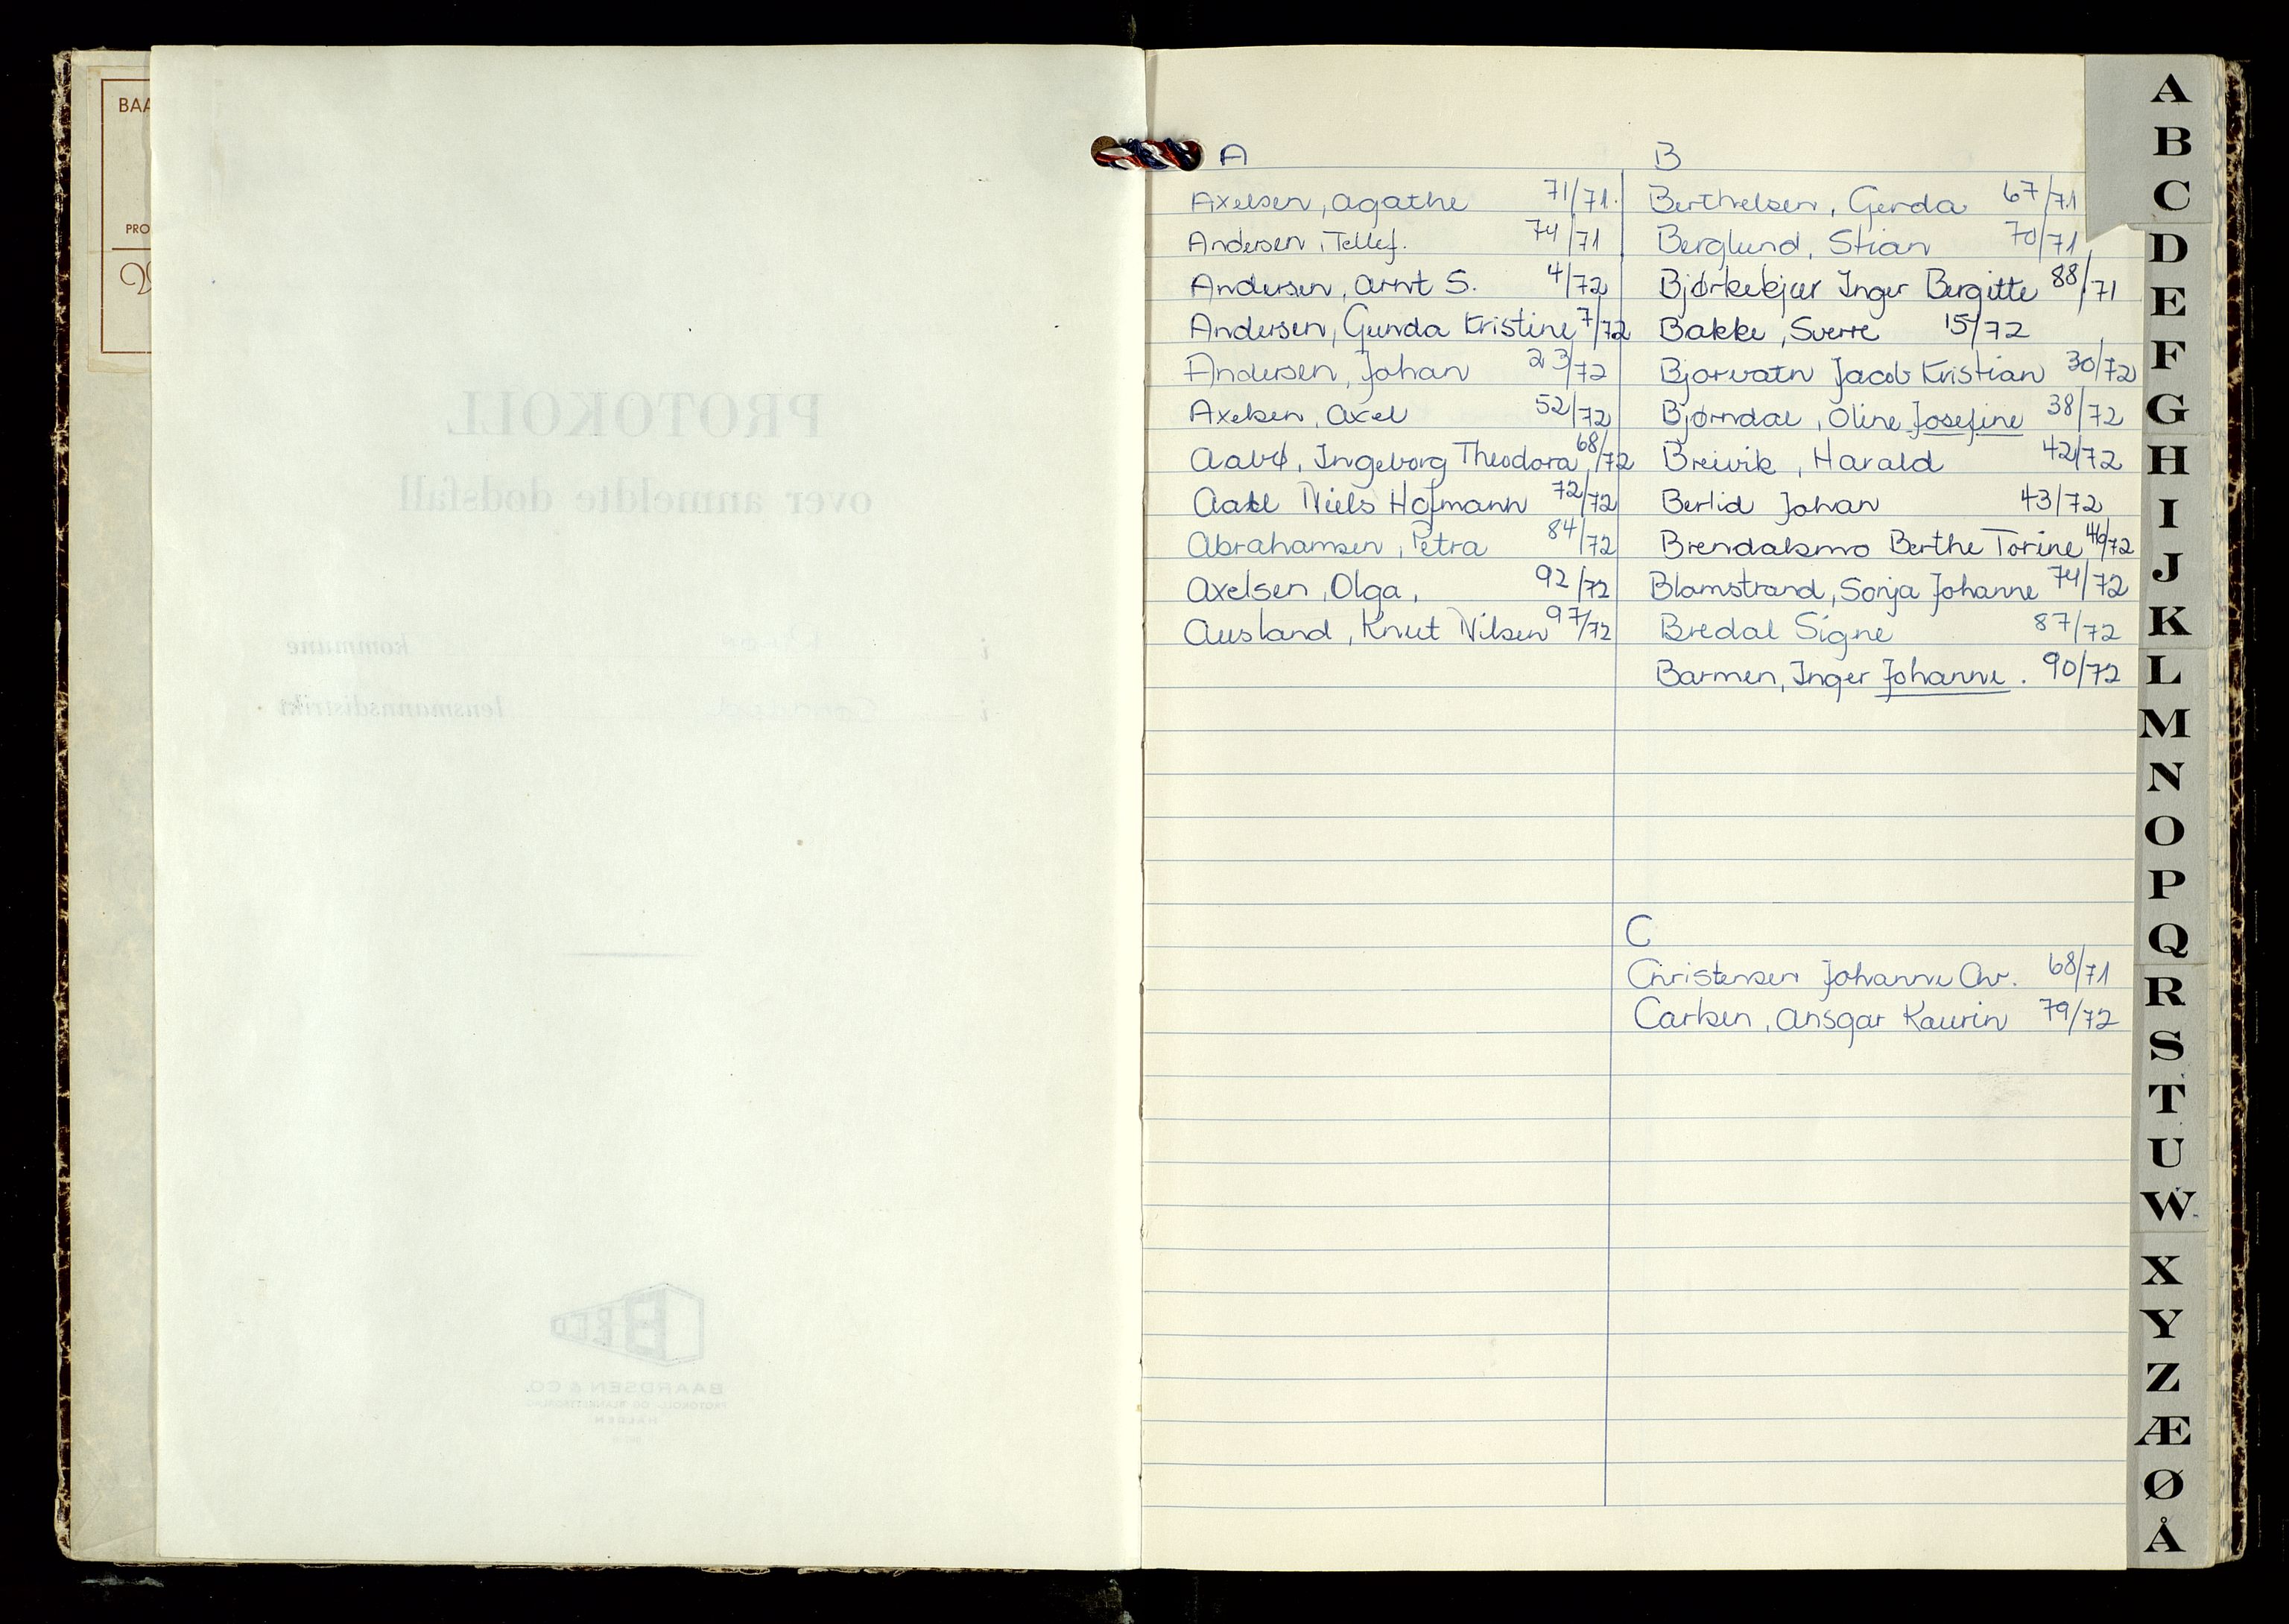 BAA
PRO
PROTOKOLL
over anmeldte dødsfall
i kommune
i lensmannsdistrikt
BAARDSEN & CO.
HALDEN
A
Axelsen, Agathe 71/71.
Andersen, Tellef. 74/71
Andersen, Arnt S. 4/72
Andersen, Gunda Kristine 7/72
Andersen, Johan 23/72
Axelsen, Axel 52/72
Aabø, Ingeborg Theodora 68/72
Aall Niels Hofmann 72/72
Abrahamsen, Petra 84/72
Axelsen, Olga, 92/72
Ausland, Knut Nilsen 97/72
B
Berthelsen, Gerda 67/71
Berglund, Stian 70/71
Bjørkekjær Inger Bergitte 88/71
Bakke, Sverre 15/72
Bjorvatn Jacob Kristian 30/72
Bjørndal, Oline Josefine 38/72
Breivik, Harald 42/72
Berlid Johan 43/72
Brendalsmo Berthe Torine 46/72
Blomstrand, Sonja Johanne 74/72
Bredal Signe 87/72
Barmen, Inger Johanne. 90/72
C
Christensen Johanne Chr. 68/71
Carlsen, Ansgar Kaurin 79/72
A
B
C
D
E
F
G
H
I
J
K
L
M
N
O
P
Q
R
S
T
U
W
X
Y
Z
Æ
Ø
Å